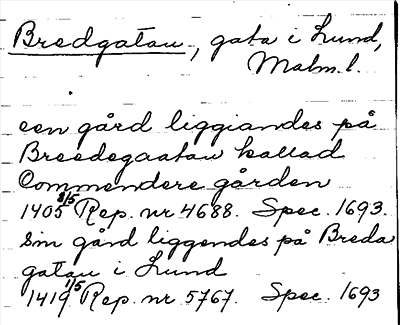 Bredgatan, gata i Lund,
Malm.l.
een gård liggiandes på
Breedegaatan kallad
Commendere gården
1405 8/5 Rep. nr 4688. Spec. 1693.
Sin gård liggendes på Breda
gatan i Lund
1419 1/5 Rep. nr 5767. Spec. 1693